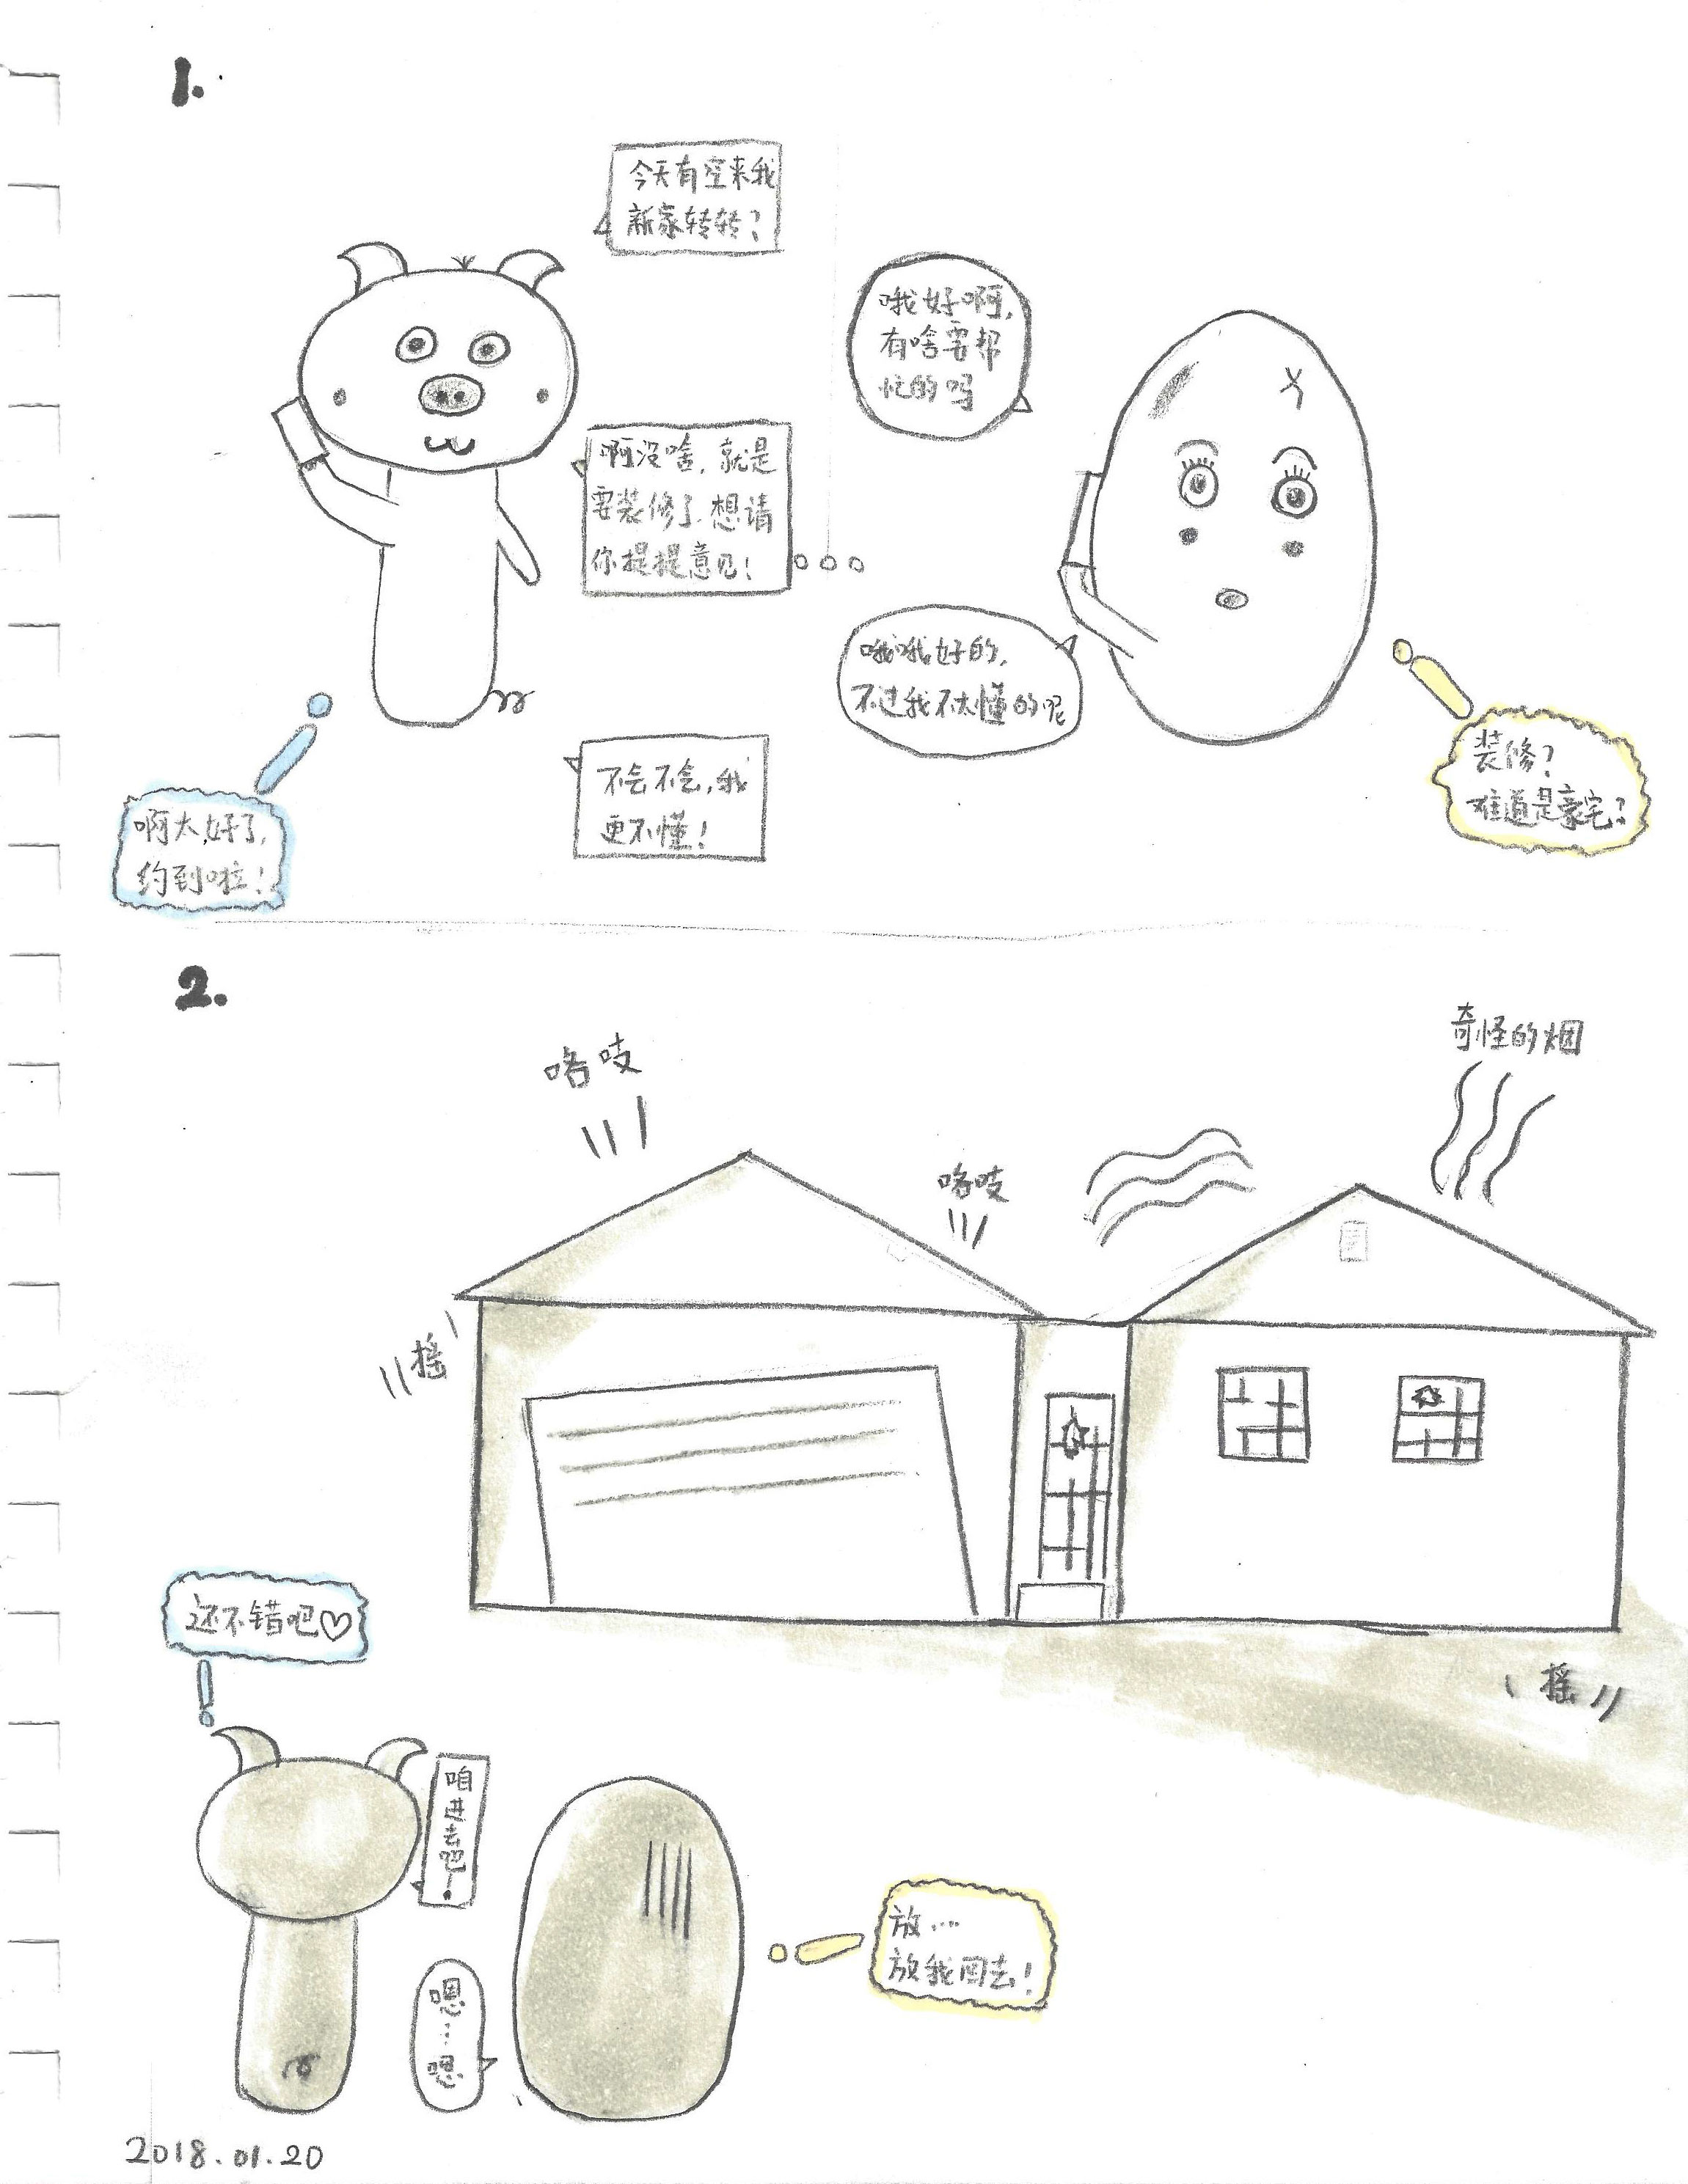 1.
今天有空来我
新家转转？
哦好啊，
有啥要帮
忙的吗
啊没啥，就是
要装修了，想请
你提提意见！
哦哦好的，
不过我不太懂的呢
不会不会，我
更不懂！
啊太好了，
约到啦！
装修？
难道是豪宅？
2.
咯吱
奇怪的烟
咯吱
摇
摇
还不错吧♡
咱进去吧！
嗯…嗯
放…
放我回去！
2018.01.20